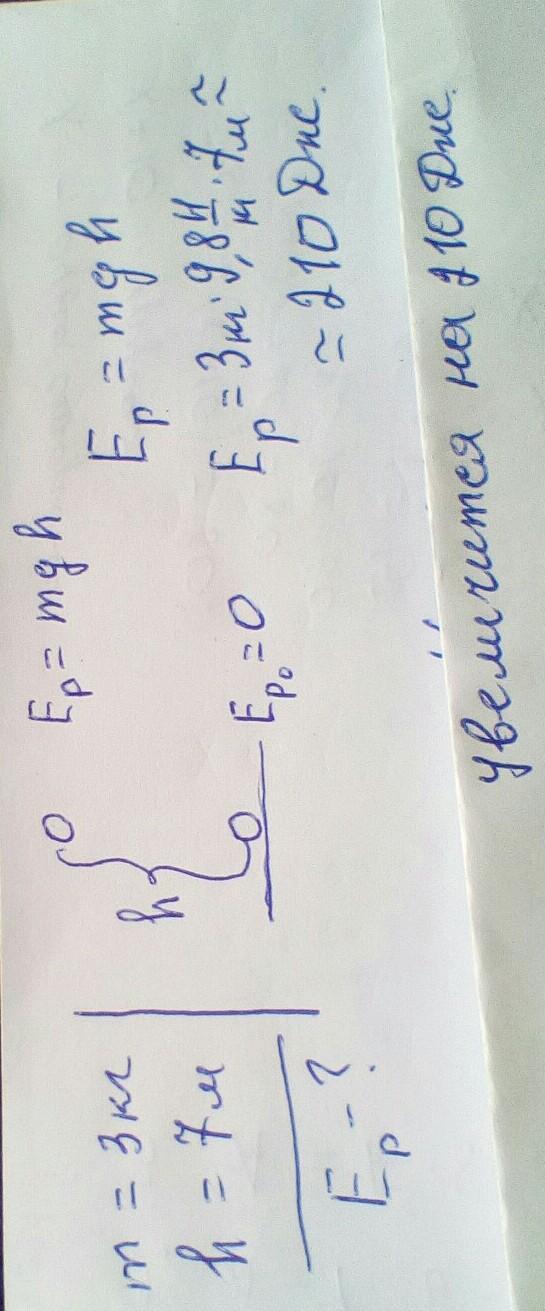 m = 3кг
h = 7м
Eр - ?
h
Eр = mgh
Eр₀ = 0
Eр = mgh
Eр = 3кг · 9,8 Н/кг · 7м ≃
≃ 210 Дж.
увеличится на 210 Дж.